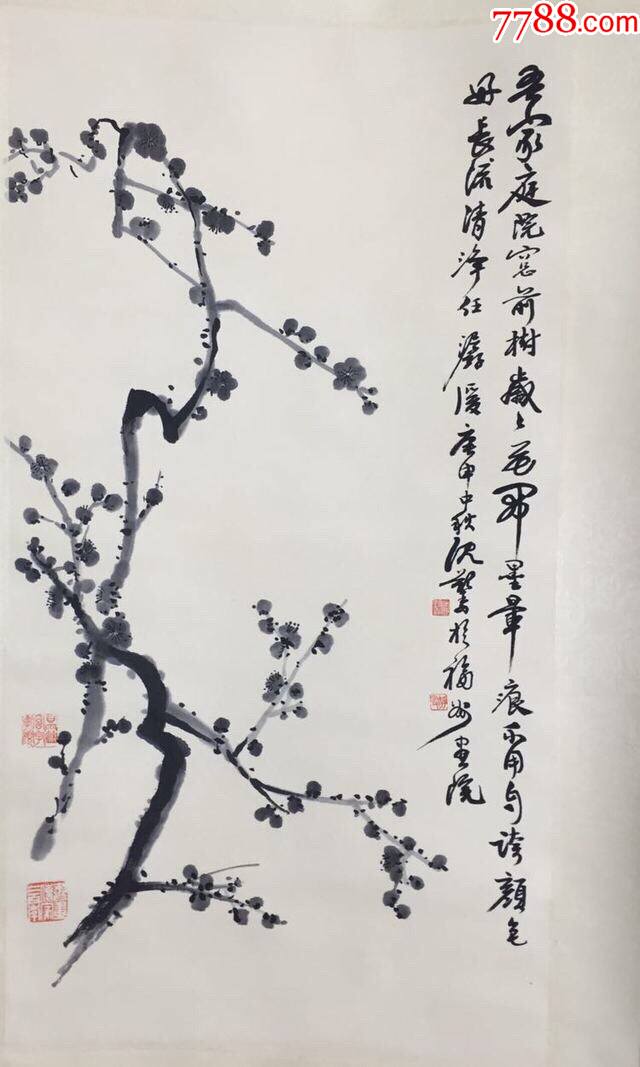 7788.com
吾家庭院窓前樹歲々花開墨暈痕不用与誇顏色
好長流清淨任潺湲庚申中秋沈於福州画院